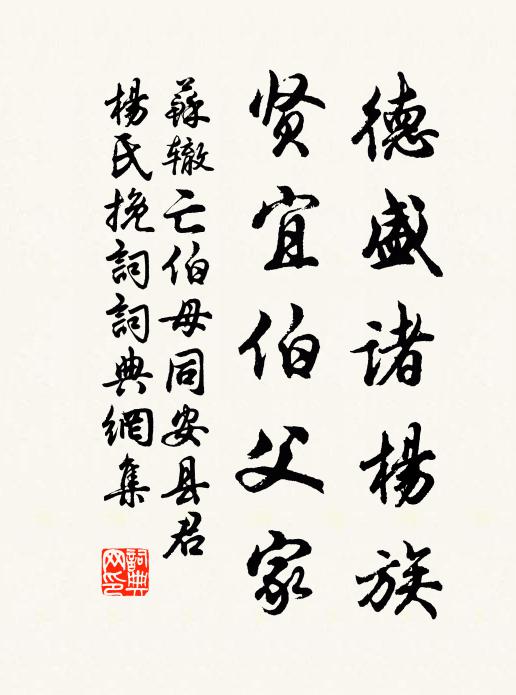 德盛诸杨族
贤宜伯父家
蘇辙亡伯母同安县君
楊氏挽詞詞典網集
詞典网印